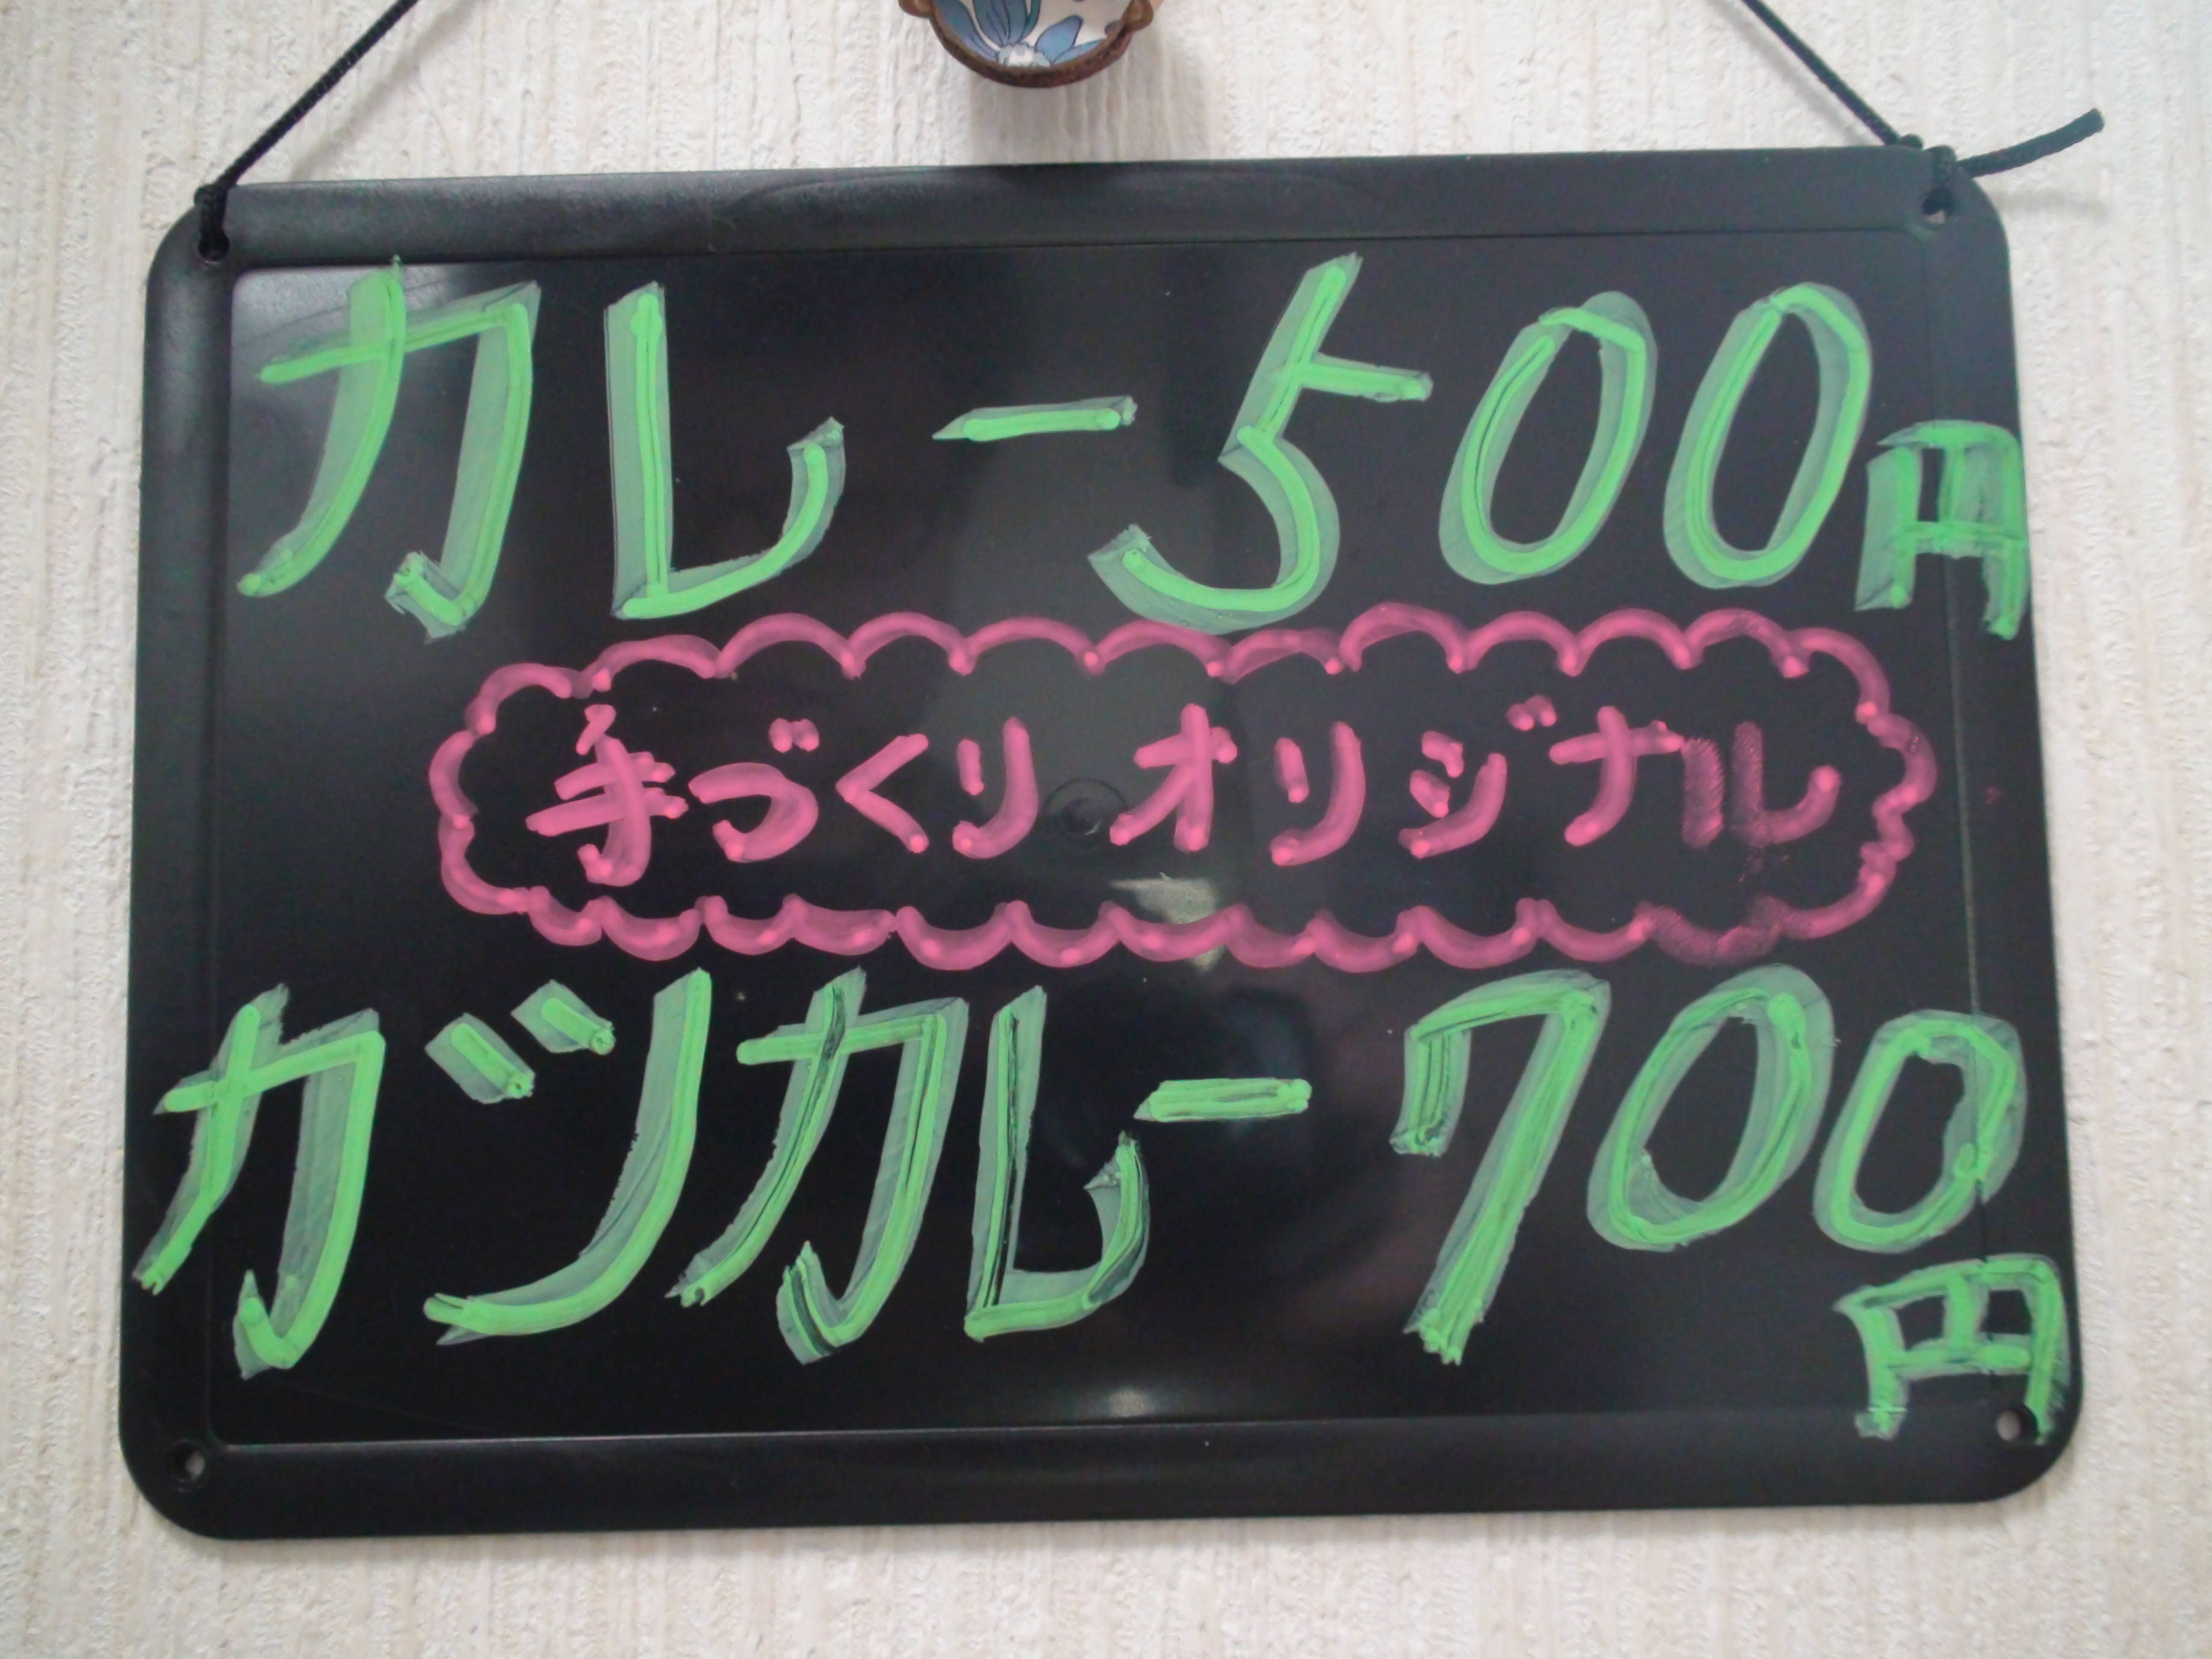 カレー500円
手づくりオリジナル
カツカレー700円